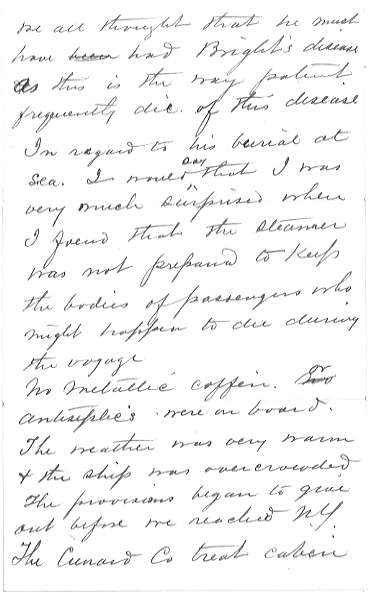 we all thought that he must
have been had Bright's disease
as this is the way patient
frequently die. of this disease
In regard to his burial at
sea. I would say that I was
very much surprised when
I found that the steamer
was not prepared to keep
the bodies of passengers who
might happen to die during
the voyage
No metallic coffin.
antiseptic's were on board.
The weather was very warm
& the ship was overcrowded
The provisions began to give
out before we reached NY.
The Cunard Co treat cabin